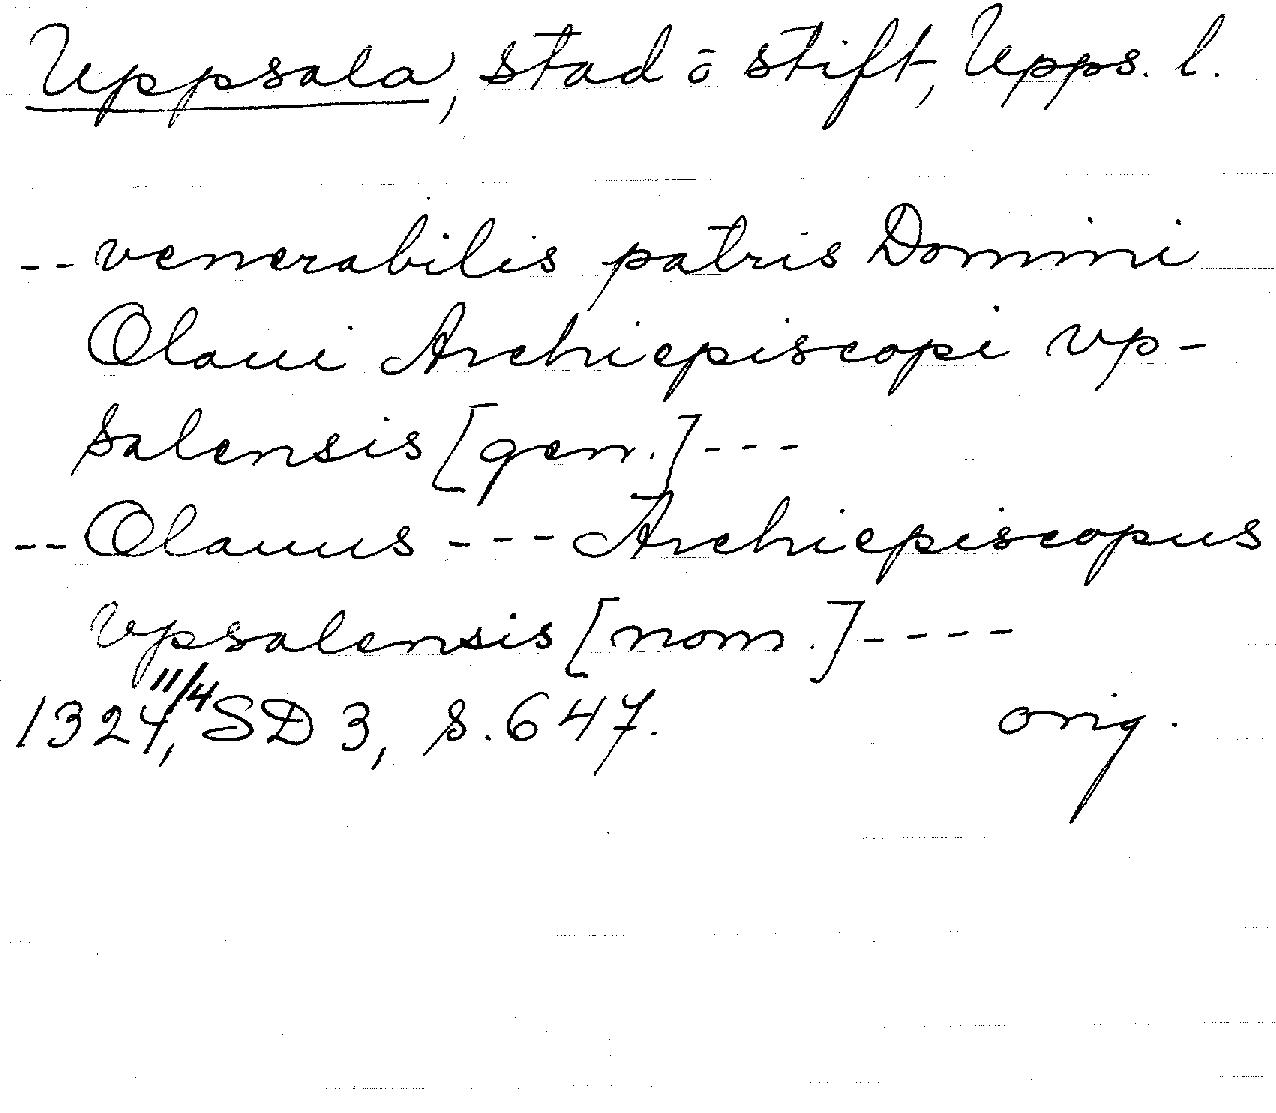 Uppsala, stad ō stift, Upps. l.
-- venerabilis patris Domini
Olaui Archiepiscopi vp-
salensis [gen.] ---
-- Olauus --- Archiepiscopus
Vpsalensis [nom.] ----
1324, 11/4 SD 3, s. 647. orig.